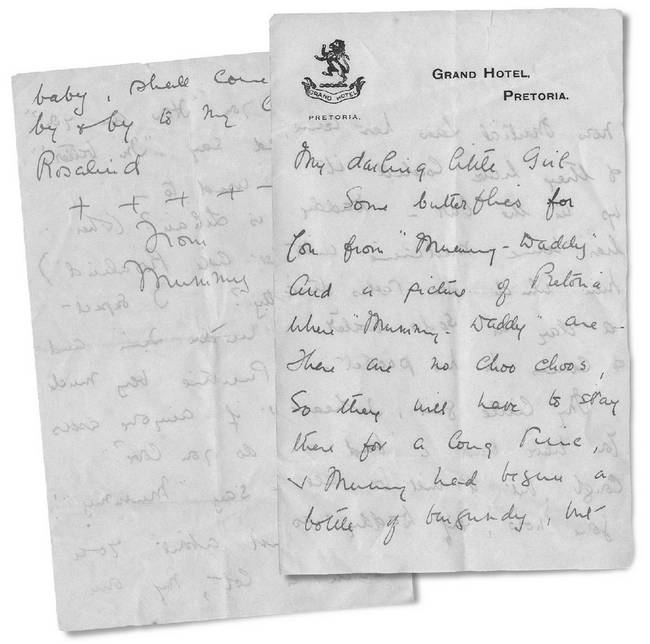 baby, shall come
by & by to my
Rosalind
+ + + + -
From
Mummy
GRAND HOTEL
PRETORIA.
GRAND HOTEL,
PRETORIA.
My darling little Girl
Some butterflies for
you from "Mummy-Daddy"
And a picture of Pretoria
where "Mummy-Daddy" are -
There are no choo choos,
So they will have to stay
there for a long time,
& Mummy had begun a
bottle of burgundy, but